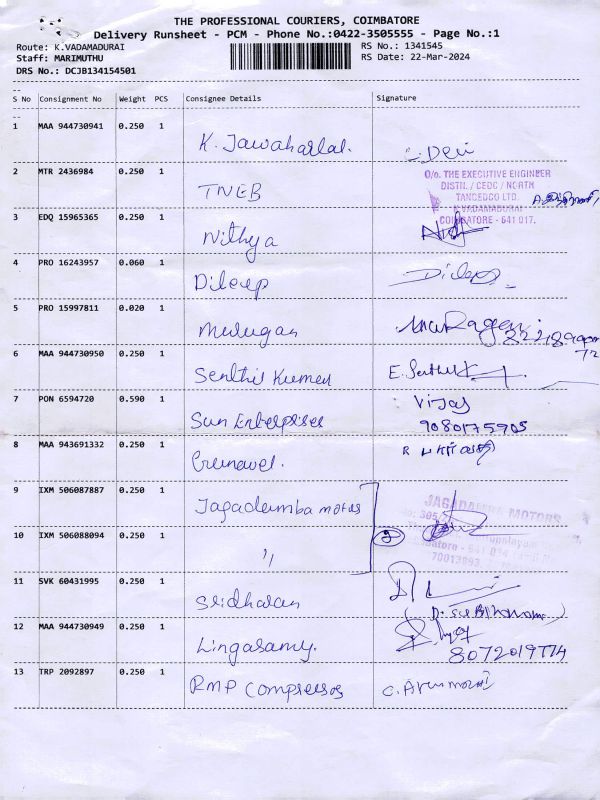 THE PROFESSIONAL COURIERS, COIMBATORE
Delivery Runsheet - PCM - Phone No.:0422-3505555 - Page No.:1
Route: K.VADAMADURAI RS No.: 1341545
Staff: MARIMUTHU RS Date: 22-Mar-2024
DRS No.: DCJB134154501
S No Consignment No Weight PCS Consignee Details Signature
1 MAA 944730941 0.250 1 K. Jawaharlal. Devi
2 MTR 2436984 0.250 1 TNEB
O/o. THE EXECUTIVE ENGINEER
DISTN. / CEDC / NORTH
TANGEDCO LTD.
K.VADAMADURAI
COIMBATORE - 641 017.
3 EDQ 15965365 0.250 1 Nithya
4 PRO 16243957 0.060 1 Dileep Dileep
5 PRO 15997811 0.020 1 Murugan
6 MAA 944730950 0.250 1 Senthil Kumar E. Senthil
7 PON 6594720 0.590 1 Sun Enterprises Vijay
9080175905
8 MAA 943691332 0.250 1
9 IXM 506087887 0.250 1 Jagadamba motors
JAGADAMBA MOTORS
10 IXM 506088094 0.250 1 " 2
11 SVK 60431995 0.250 1 Sridharan
12 MAA 944730949 0.250 1 Lingasamy.
8072019774
13 TRP 2092897 0.250 1 RMP Compressos C. Arunmozhi